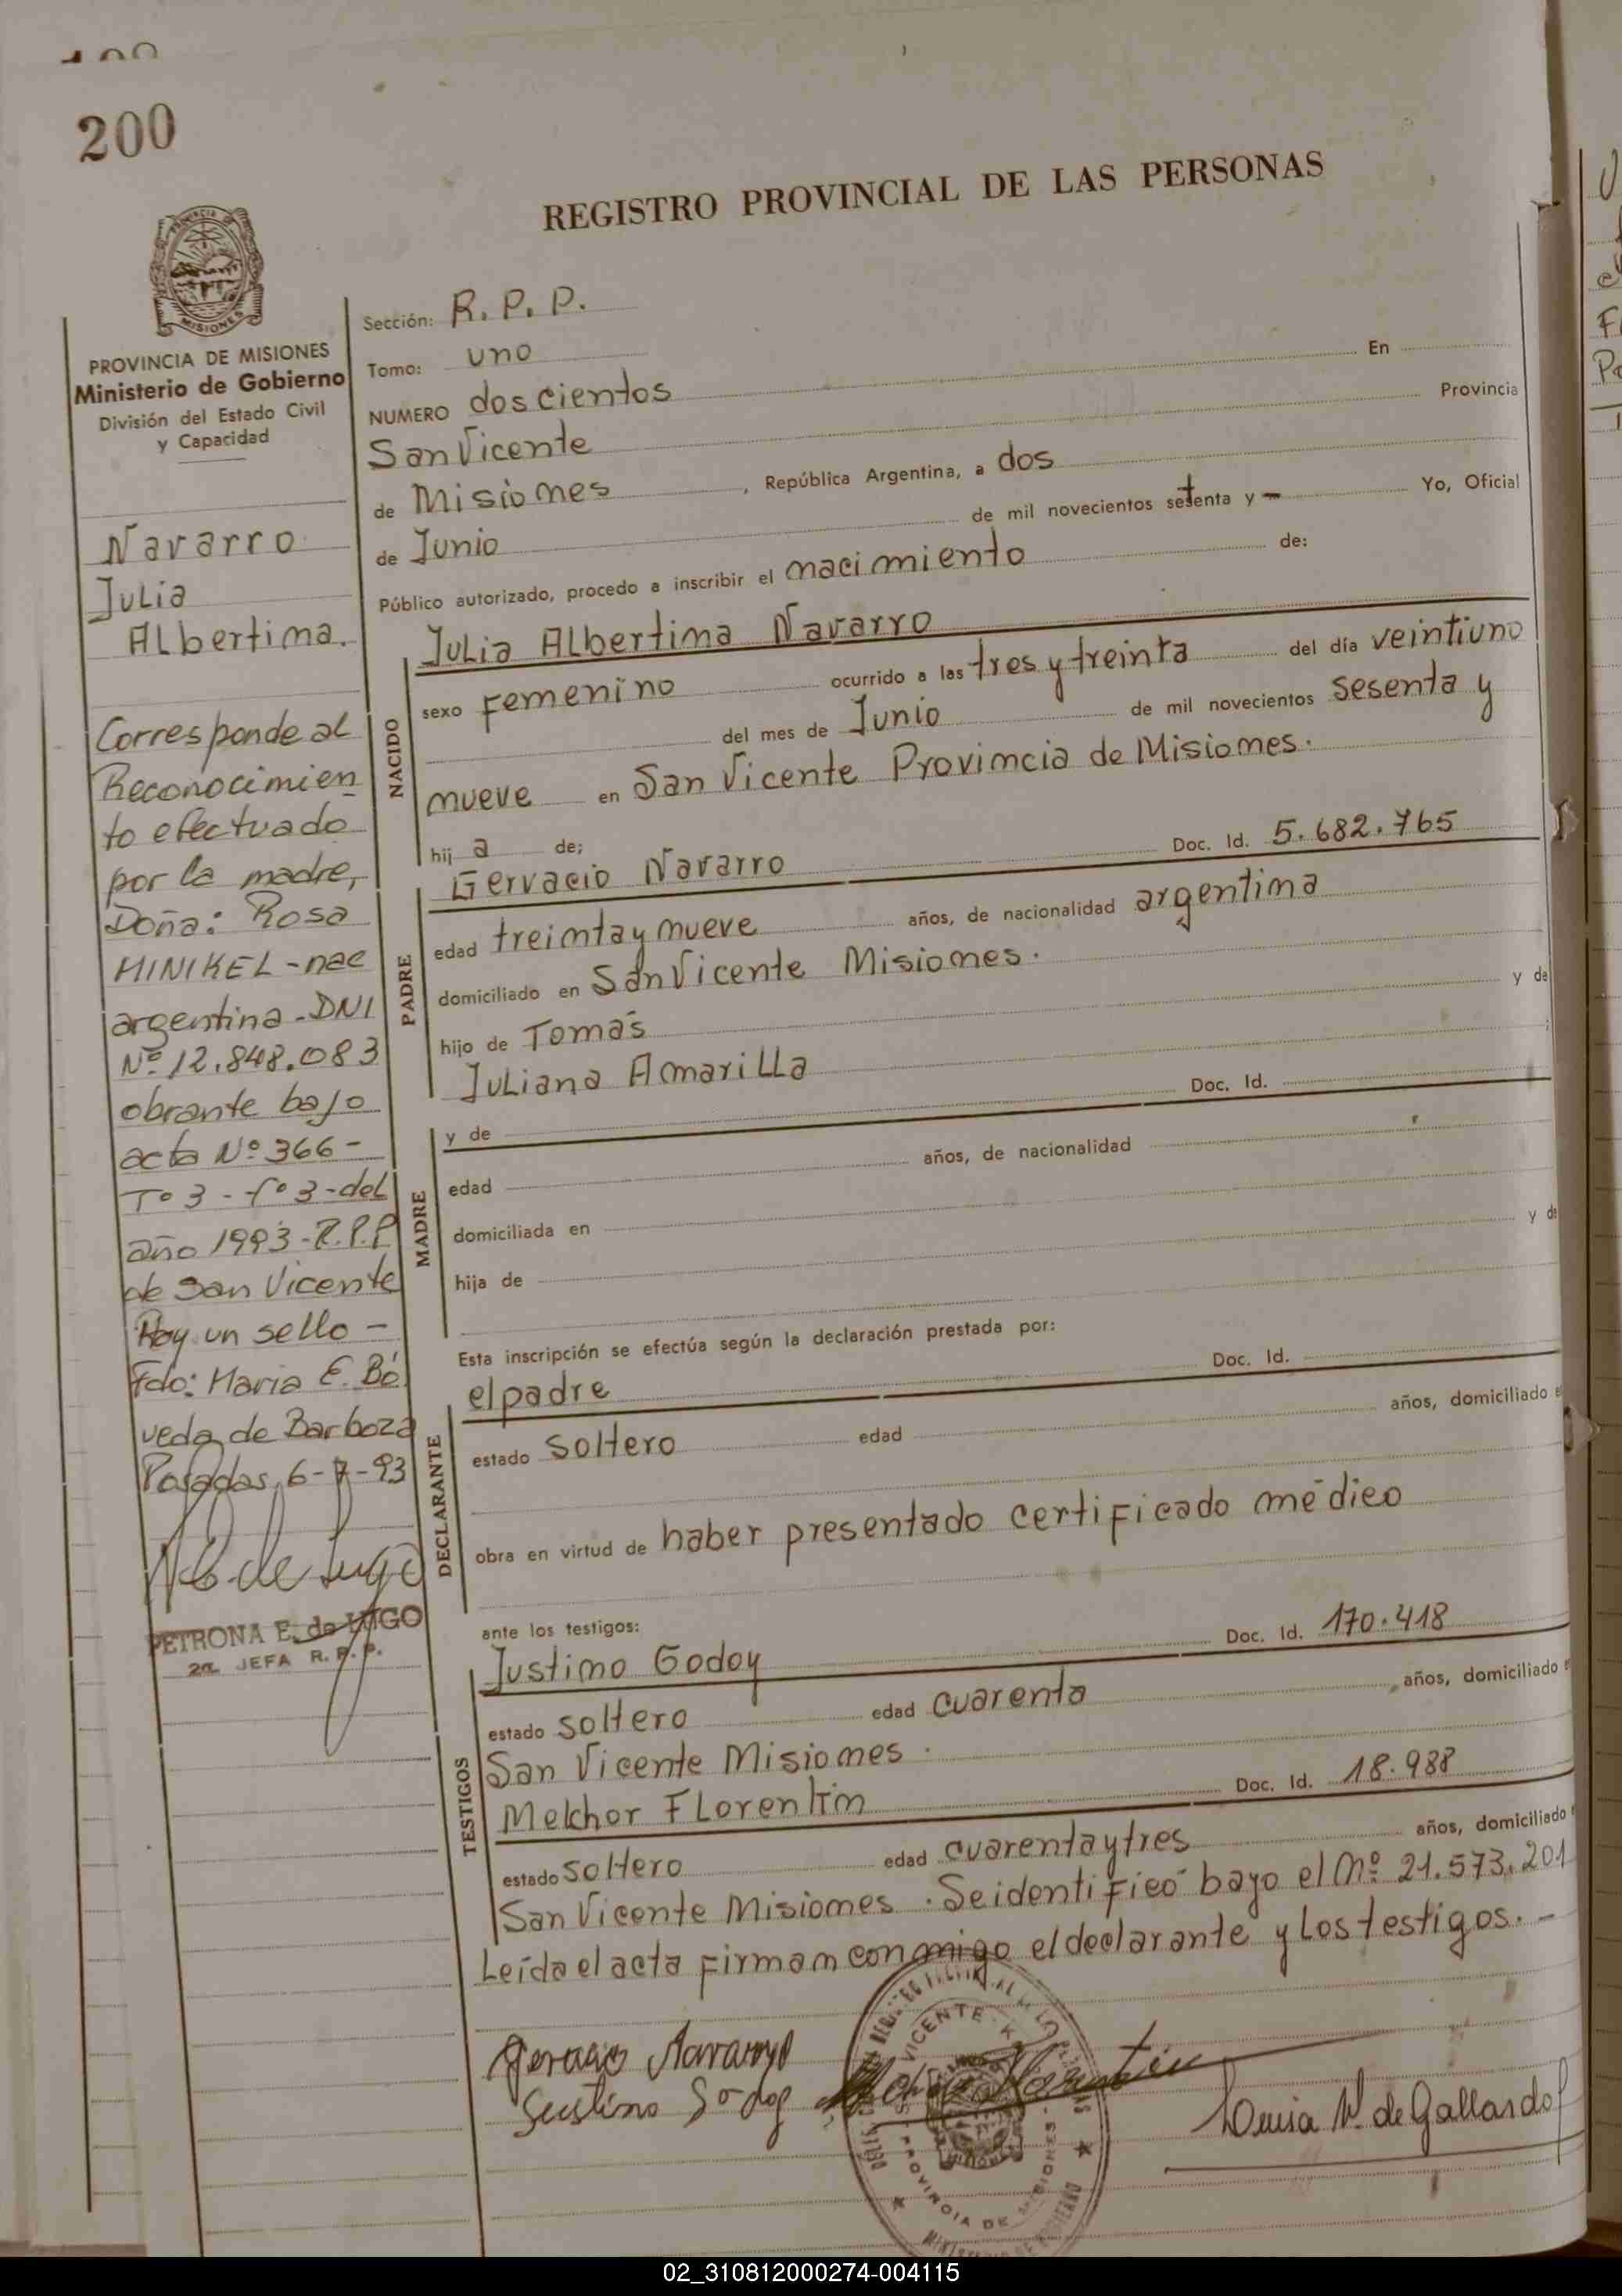 200
REGISTRO PROVINCIAL DE LAS PERSONAS
PROVINCIA DE MISIONES
Ministerio de Gobierno
División del Estado Civil
y Capacidad
Navarro
Julia
Albertina.
Corresponde al
Reconocimien
to efectuado
por la madre,
Doña: Rosa
MINIKEL - nac
argentina - DNI
Nº 12.848.083
obrante bajo
acta Nº 366 -
Tº 3 - fº 3 - del
año 1993 - R.P.P
de San Vicente
Hay un sello -
Fdo: Maria E. Bó
veda de Barboza
Posadas, 6-7-93
PETRONA E. de LUGO
2a. JEFA R. P. P.
Sección: R. P. P.
Tomo: uno
NUMERO doscientos En
San Vicente Provincia
de Misiones, República Argentina, a dos
de Junio de mil novecientos setenta y — Yo, Oficial
Público autorizado, procedo a inscribir el nacimiento de:
NACIDO
Julia Albertina Navarro
sexo Femenino ocurrido a las tres y treinta del día veintiuno
del mes de Junio de mil novecientos sesenta y
nueve en San Vicente Provincia de Misiones.
hij a de;
PADRE
Gervacio Navarro Doc. Id. 5.682.765
edad treinta y nueve años, de nacionalidad argentina
domiciliado en San Vicente Misiones.
hijo de Tomás y de
Juliana Amarilla
MADRE
y de Doc. Id.
edad años, de nacionalidad
domiciliada en
hija de y de
Esta inscripción se efectúa según la declaración prestada por:
DECLARANTE
el padre Doc. Id.
estado soltero edad años, domiciliado
obra en virtud de haber presentado certificado médico
ante los testigos:
TESTIGOS
Justino Godoy Doc. Id. 170.418
estado soltero edad cuarenta años, domiciliado
San Vicente Misiones.
Melchor Florentin Doc. Id. 18.988
estado soltero edad cuarenta y tres años, domiciliado
San Vicente Misiones. Se identificó bajo el Nº 21.573.201
Leída el acta firman conmigo el declarante y los testigos. -
VICENTE
PROVINCIA DE MISIONES
de Gallardo
02_310812000274-004115